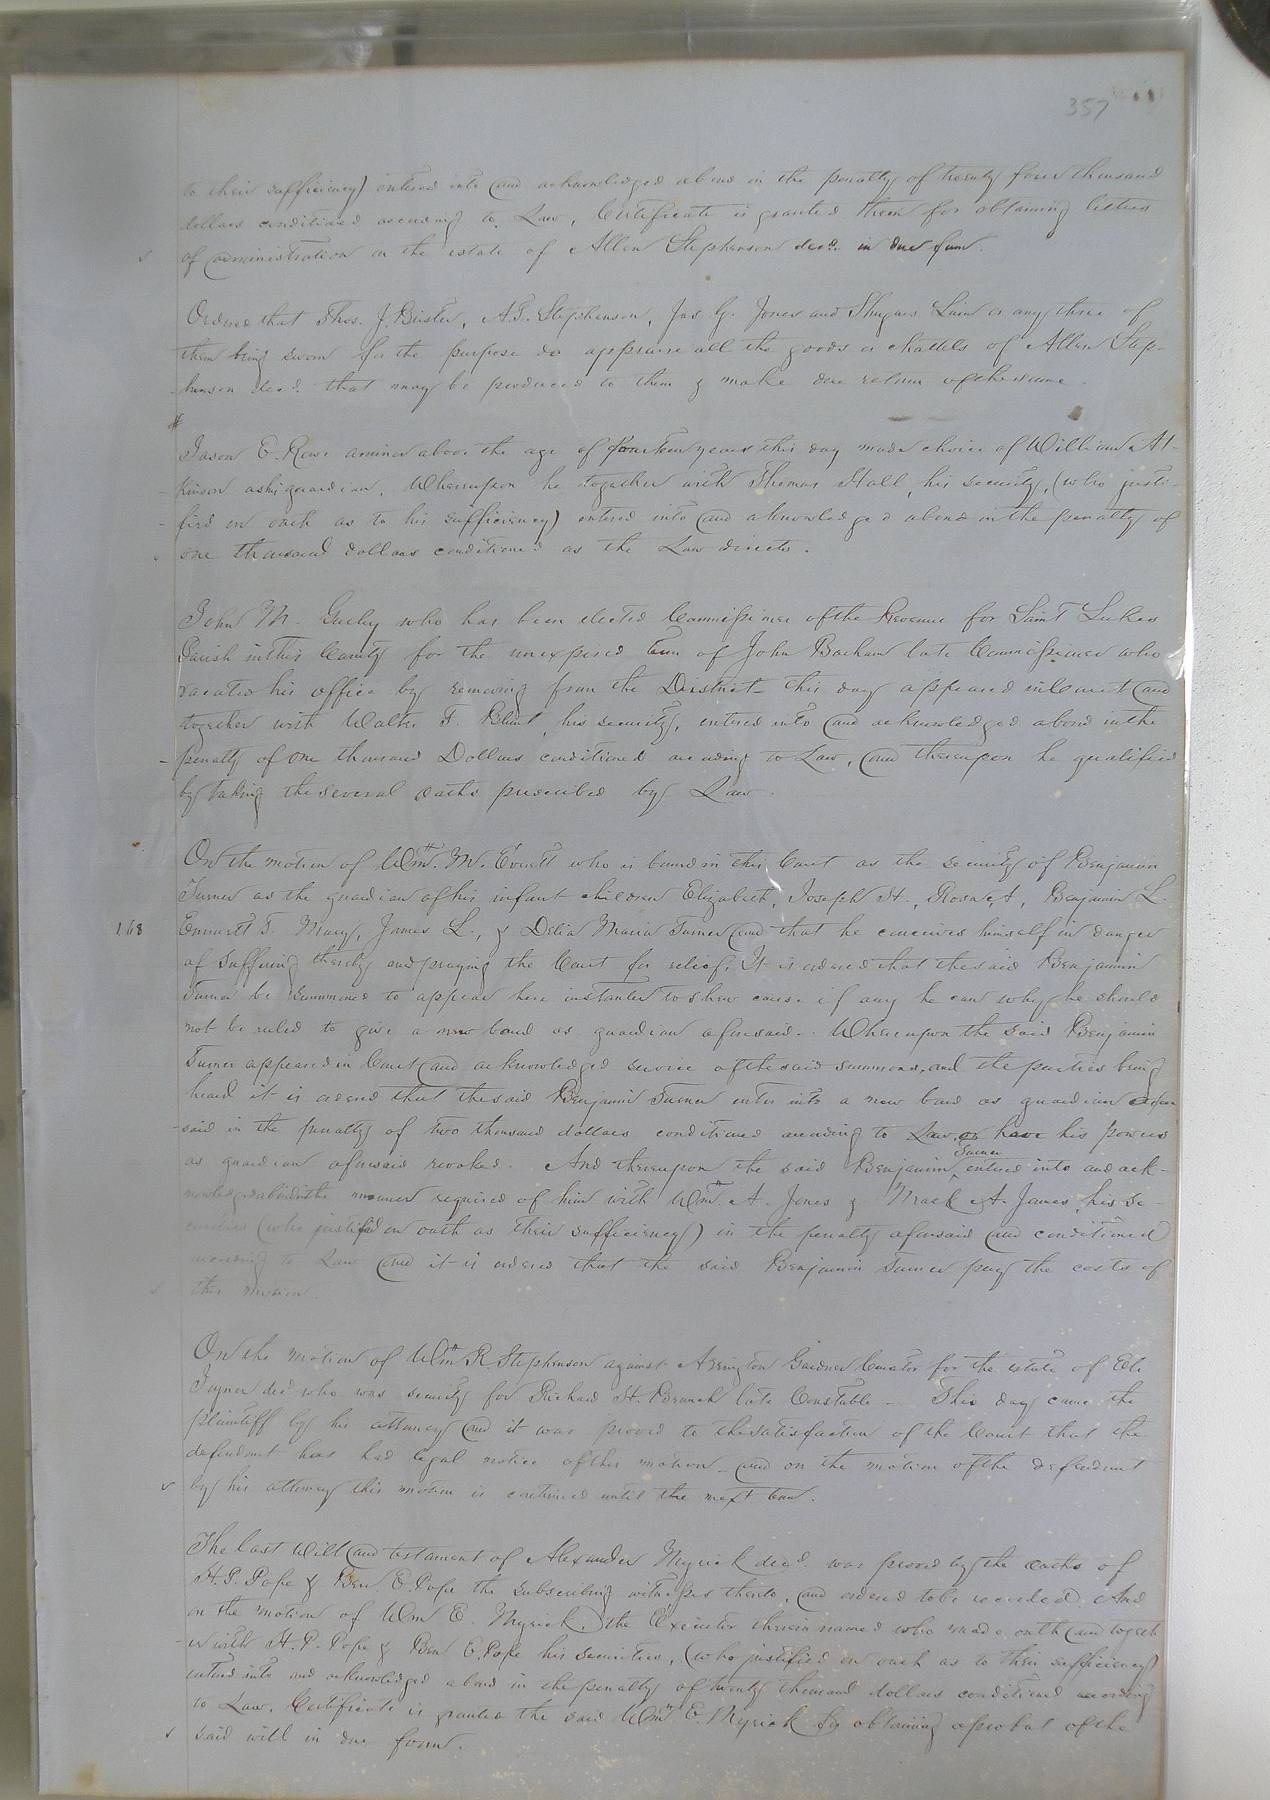 357
to their sufficiency) entered into and acknowledged a bond in the penalty of twenty four thousand
dollars conditioned according to Law, Certificate is granted them for obtaining letters
of administration on the estate of Allen Stephenson decd. in due form.
Ordered that Thos. J. Bristen, A.T. Stephenson, Jas. G. Jones and Lain or any three of
them being sworn for the purpose do appraise all the goods & chattels of Allen Step-
-henson decd. that may be produced to them & make due return of the same.
Jason E. Rowe a minor above the age of fourteen years this day made choice of William At-
-kinson as his guardian, Whereupon he together with Thomas Hall, his security, (who justi-
-fied on oath as to his sufficiency) entered into and acknowledged a bond in the penalty of
one thousand dollars conditioned as the Law directs.
John M. Gurley who has been elected Commissioner of the Revenue for Saint Lukes
Parish in this County for the unexpired term of John Barham late Commissioner who
vacates his office by removing from the District this day appeared in Court and
together with Walter F. Blunt, his security, entered into and acknowledged a bond in the
-penalty of one thousand Dollars conditioned according to Law, and thereupon he qualified
by taking the several oaths prescribed by Law.
On the motion of Wm. M. Everett who is bound in this Court as the security of Benjamin
Turner as the guardian of his infant children Elizabeth, Joseph H., Rosa A, Benjamin L.
168 Emmett T. Mary, James L., & Delia Maria Turner and that he conceives himself in danger
of suffering thereby and praying the Court for relief. It is ordered that the said Benjamin
Turner be summoned to appear here instanter to shew cause if any he can why he should
not be ruled to give a new bond as guardian aforesaid. Whereupon the said Benjamin
Turner appeared in Court and acknowledged service of the said summons, and the parties being
heard it is ordered that the said Benjamin Turner enter into a new bond as guardian afore
-said in the penalty of two thousand dollars conditioned according to Law, or have his powers
as guardian aforesaid revoked. And thereupon the said Benjamin Turner entered into and ack-
nowledged a bond in the manner required of him with Wm. A. Jones & Mack A. James, his se-
curities (who justified on oath as their sufficiency) in the penalty aforesaid and conditioned
according to Law and it is ordered that the said Benjamin Turner pay the costs of
this motion.
On the motion of Wm R Stephenson against Arrington Gardner Curator for the estate of Eli
Joyner decd who was security for Richard H. Branch late Constable - This day came the
plaintiff by his attorney and it was proved to the satisfaction of the Court that the
defendant has had legal notice of this motion - and on the motion of the defendant
by his attorney this motion is continued until the next term.
The last Will and testament of Alexander Myrick decd. was proved by the oaths of
H.P. Pope & Ben. E. Pope the subscribing witnesses thereto, and ordered to be recorded. And
on the motion of Wm E. Myrick, the Executor therein named who made oath and togeth
er with H.P. Pope & Ben E. Pope his securities, (who justified on oath as to their sufficiency)
entered into and acknowledged a bond in the penalty of twenty thousand dollars conditioned according
to Law. Certificate is granted the said Wm E Myrick for obtaining a probat of the
said will in due form.